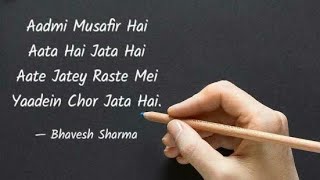 Aadmi Musafir Hai
Aata Hai Jata Hai
Aate Jatey Raste Mei
Yaadein Chor Jata Hai.
— Bhavesh Sharma